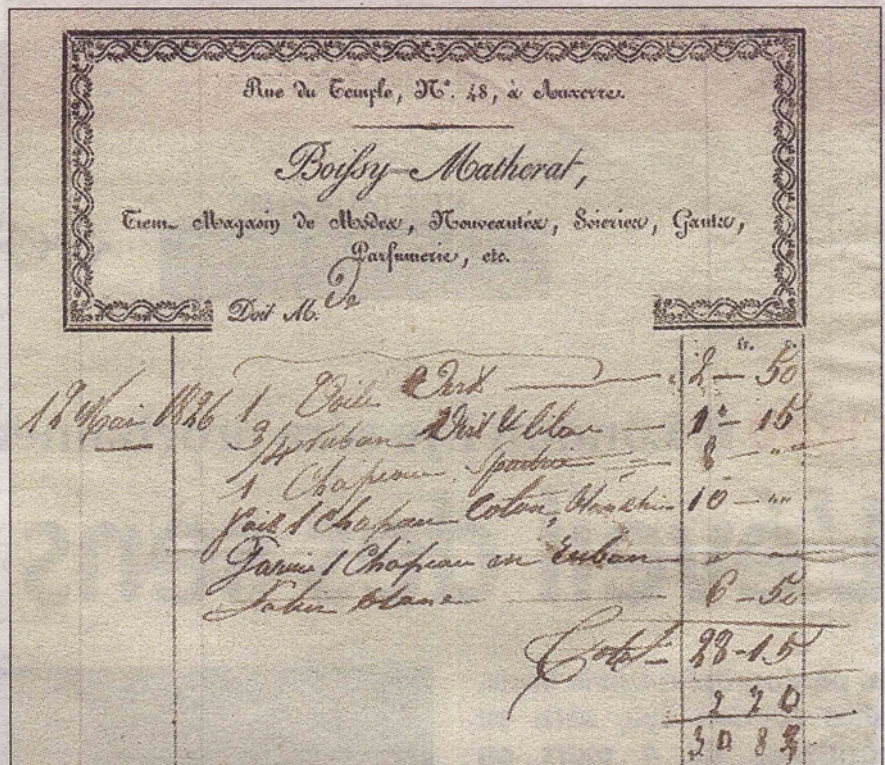 Rue du Temple, N°. 48, à Auxerre.
Boissy-Matherat,
Tient Magasin de Modes, Nouveautés, Soieries, Gants,
Parfumerie, etc.
Doit M. De
fr. c.
12 Mai 1826 1 Voile Vert 2 - 50
3/4 ruban Vert & lilas 1 - 15
1 Chapeau 8 - "
fait 1 Chapeau Coton, 10 - "
Garnie 1 Chapeau en ruban
Satin blanc 6 - 50
Total 28-15
2 20